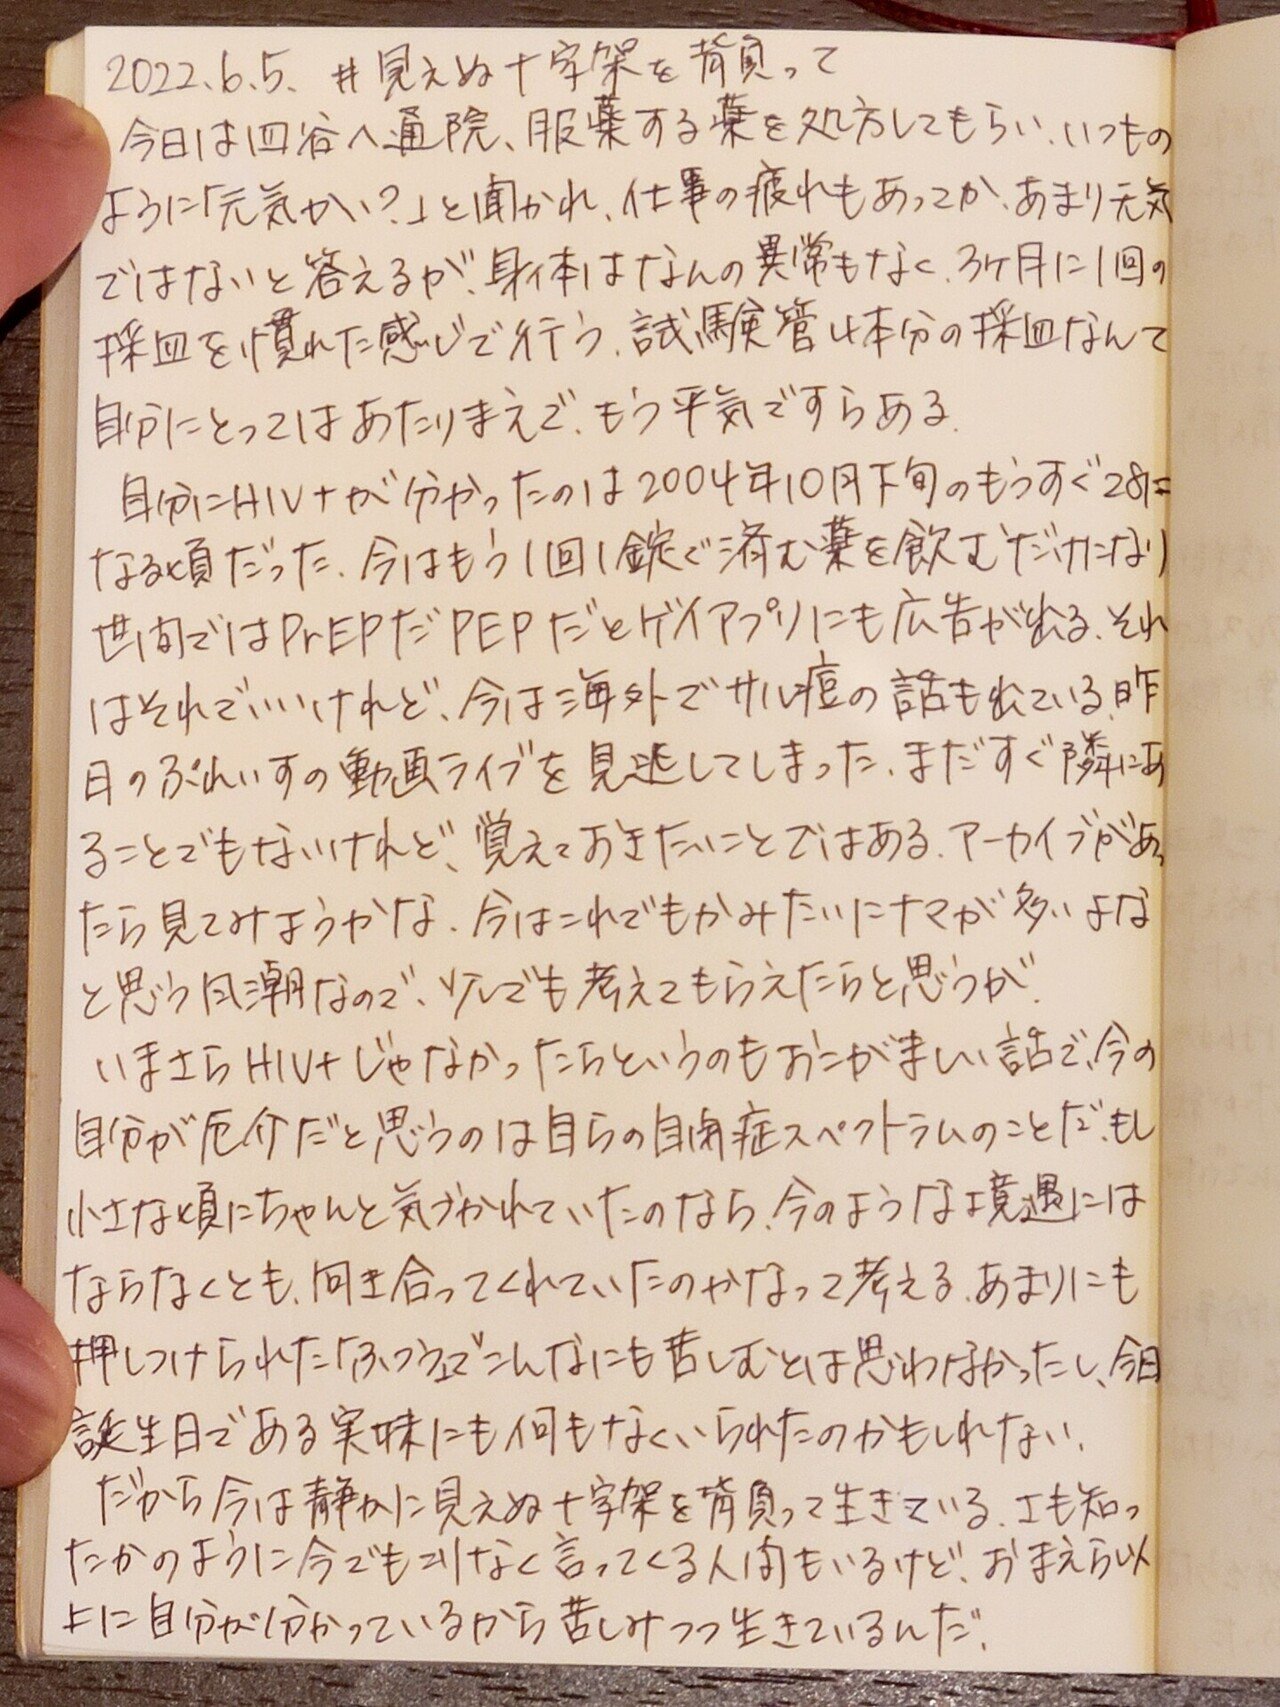 2022.6.5. #見えぬ十字架を背負って
今日は四谷へ通院、服薬する薬を処方してもらい、いつもの
ように「元気かい?」と聞かれ、仕事の疲れもあってか、あまり元気
ではないと答えるが、身体はなんの異常もなく、3ヶ月に1回の
採血を慣れた感じで行う、試験管4本分の採血なんて
自分にとってはあたりまえで、もう平気ですらある、
自分にHIV+が分かったのは2004年10月下旬のもうすぐ28に
なる頃だった、今はもう1回1錠で済む薬を飲むだけになり
世間ではPrEPだPEPだとゲイアプリにも広告が出る、それ
はそれでいいけれど、今は海外でサル痘の話も出ている、昨
日のぷれいすの動画ライブを見逃してしまった、まだすぐ隣にあ
ることでもないけれど、覚えておきたいことではある、アーカイブがあっ
たら見てみようかな、今はこれでもかみたいにナマが多いよな
と思う風潮なので、少しでも考えてもらえたらと思うが、
いまさらHIV+じゃなかったらというのもおこがましい話で、今の
自分が厄介だと思うのは自らの自閉症スペクトラムのことだ、もし
小さな頃にちゃんと気づかれていたのなら、今のような境遇には
ならなくとも、向き合ってくれていたのかなって考える、あまりにも
押しつけられた「ふつう」でこんなにも苦しむとは思わなかったし、今日
誕生日である実妹にも何もなくいられたのかもしれない、
だから今は静かに見えぬ十字架を背負って生きている、さも知っ
たかのように今でも懲りなく言ってくる人間もいるけど、おまえら以
上に自分が分かっているから苦しみつつ生きているんだ、